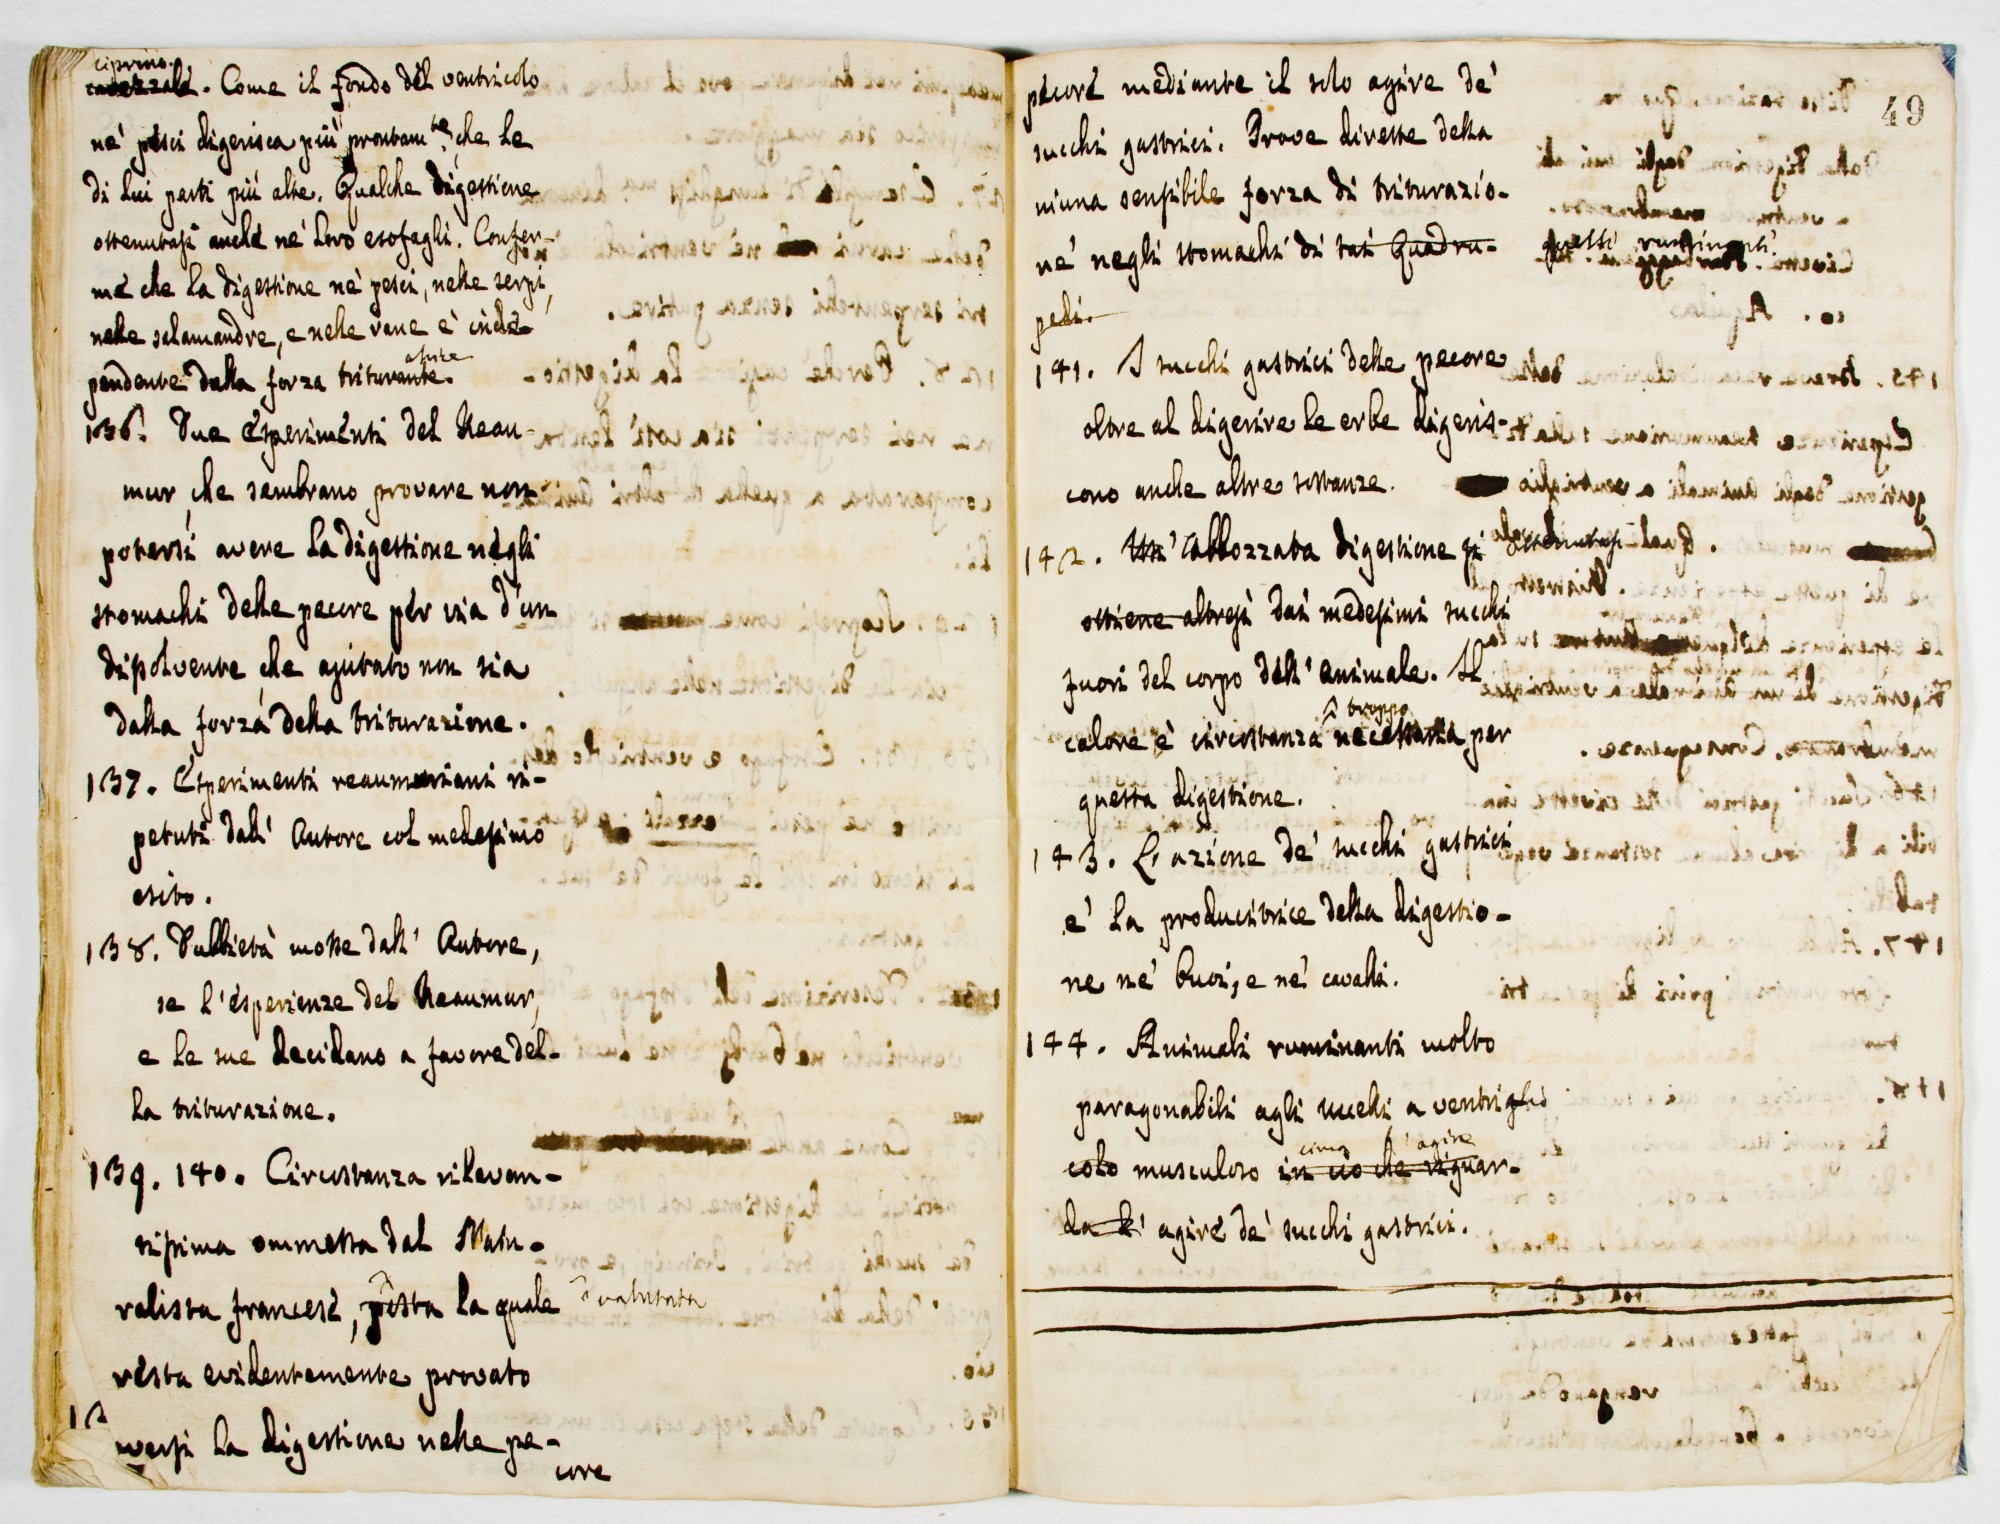 ciprino.
Come il fondo del ventricolo
ne' pesci digerisca più prontam.te che le
di lui parti più alte. Qualche digestione
ottenutasi anche ne' loro esofaghi. Confer-
me che la digestione ne' pesci, nelle serpi,
nelle salamandre, e nelle rane è inde-
pendente dalla forza triturante.
136. Due esperimenti del Reau-
mur, che sembrano provare non
potersi avere la digestione negli
stomachi delle pecore per via d'un
dissolvente che ajutato non sia
dalla forza della triturazione.
137. Esperimenti reaumuriani ri-
petuti dall' Autore col medesimo
esito.
138. Dubbietà mosse dall' Autore,
se l'esperienze del Reaumur,
e le sue decidano a favore del-
la triturazione.
139. 140. Circostanza rilevan-
tissima ommessa dal Natu-
ralista francese, posta la quale
valutata
resta evidentemente provato
aversi la digestione nelle pe-
core
49
pecore mediante il solo agire de'
succhi gastrici. Prove dirette della
niuna sensibile forza di triturazio-
ne negli stomachi di tai Quadru-
questi ruminanti.
pedi.
141. I succhi gastrici delle pecore
oltre al digerire le erbe digeris-
cono anche altre sostanze.
142. Un' abbozzata digestione si
ottenutasi
ottiene altresì dai medesimi succhi
fuori del corpo dell' animale. Il
troppo
calore è circostanza necessaria per
questa digestione.
143. L'azione de' succhi gastrici
è la producitrice della digestio-
ne ne' buoi, e ne' cavalli.
144. Animali ruminanti molto
paragonabili agli uccelli a ventriglio
circa l'agire
colo musculoso in ciò che riguar-
da l' agire de' succhi gastrici.